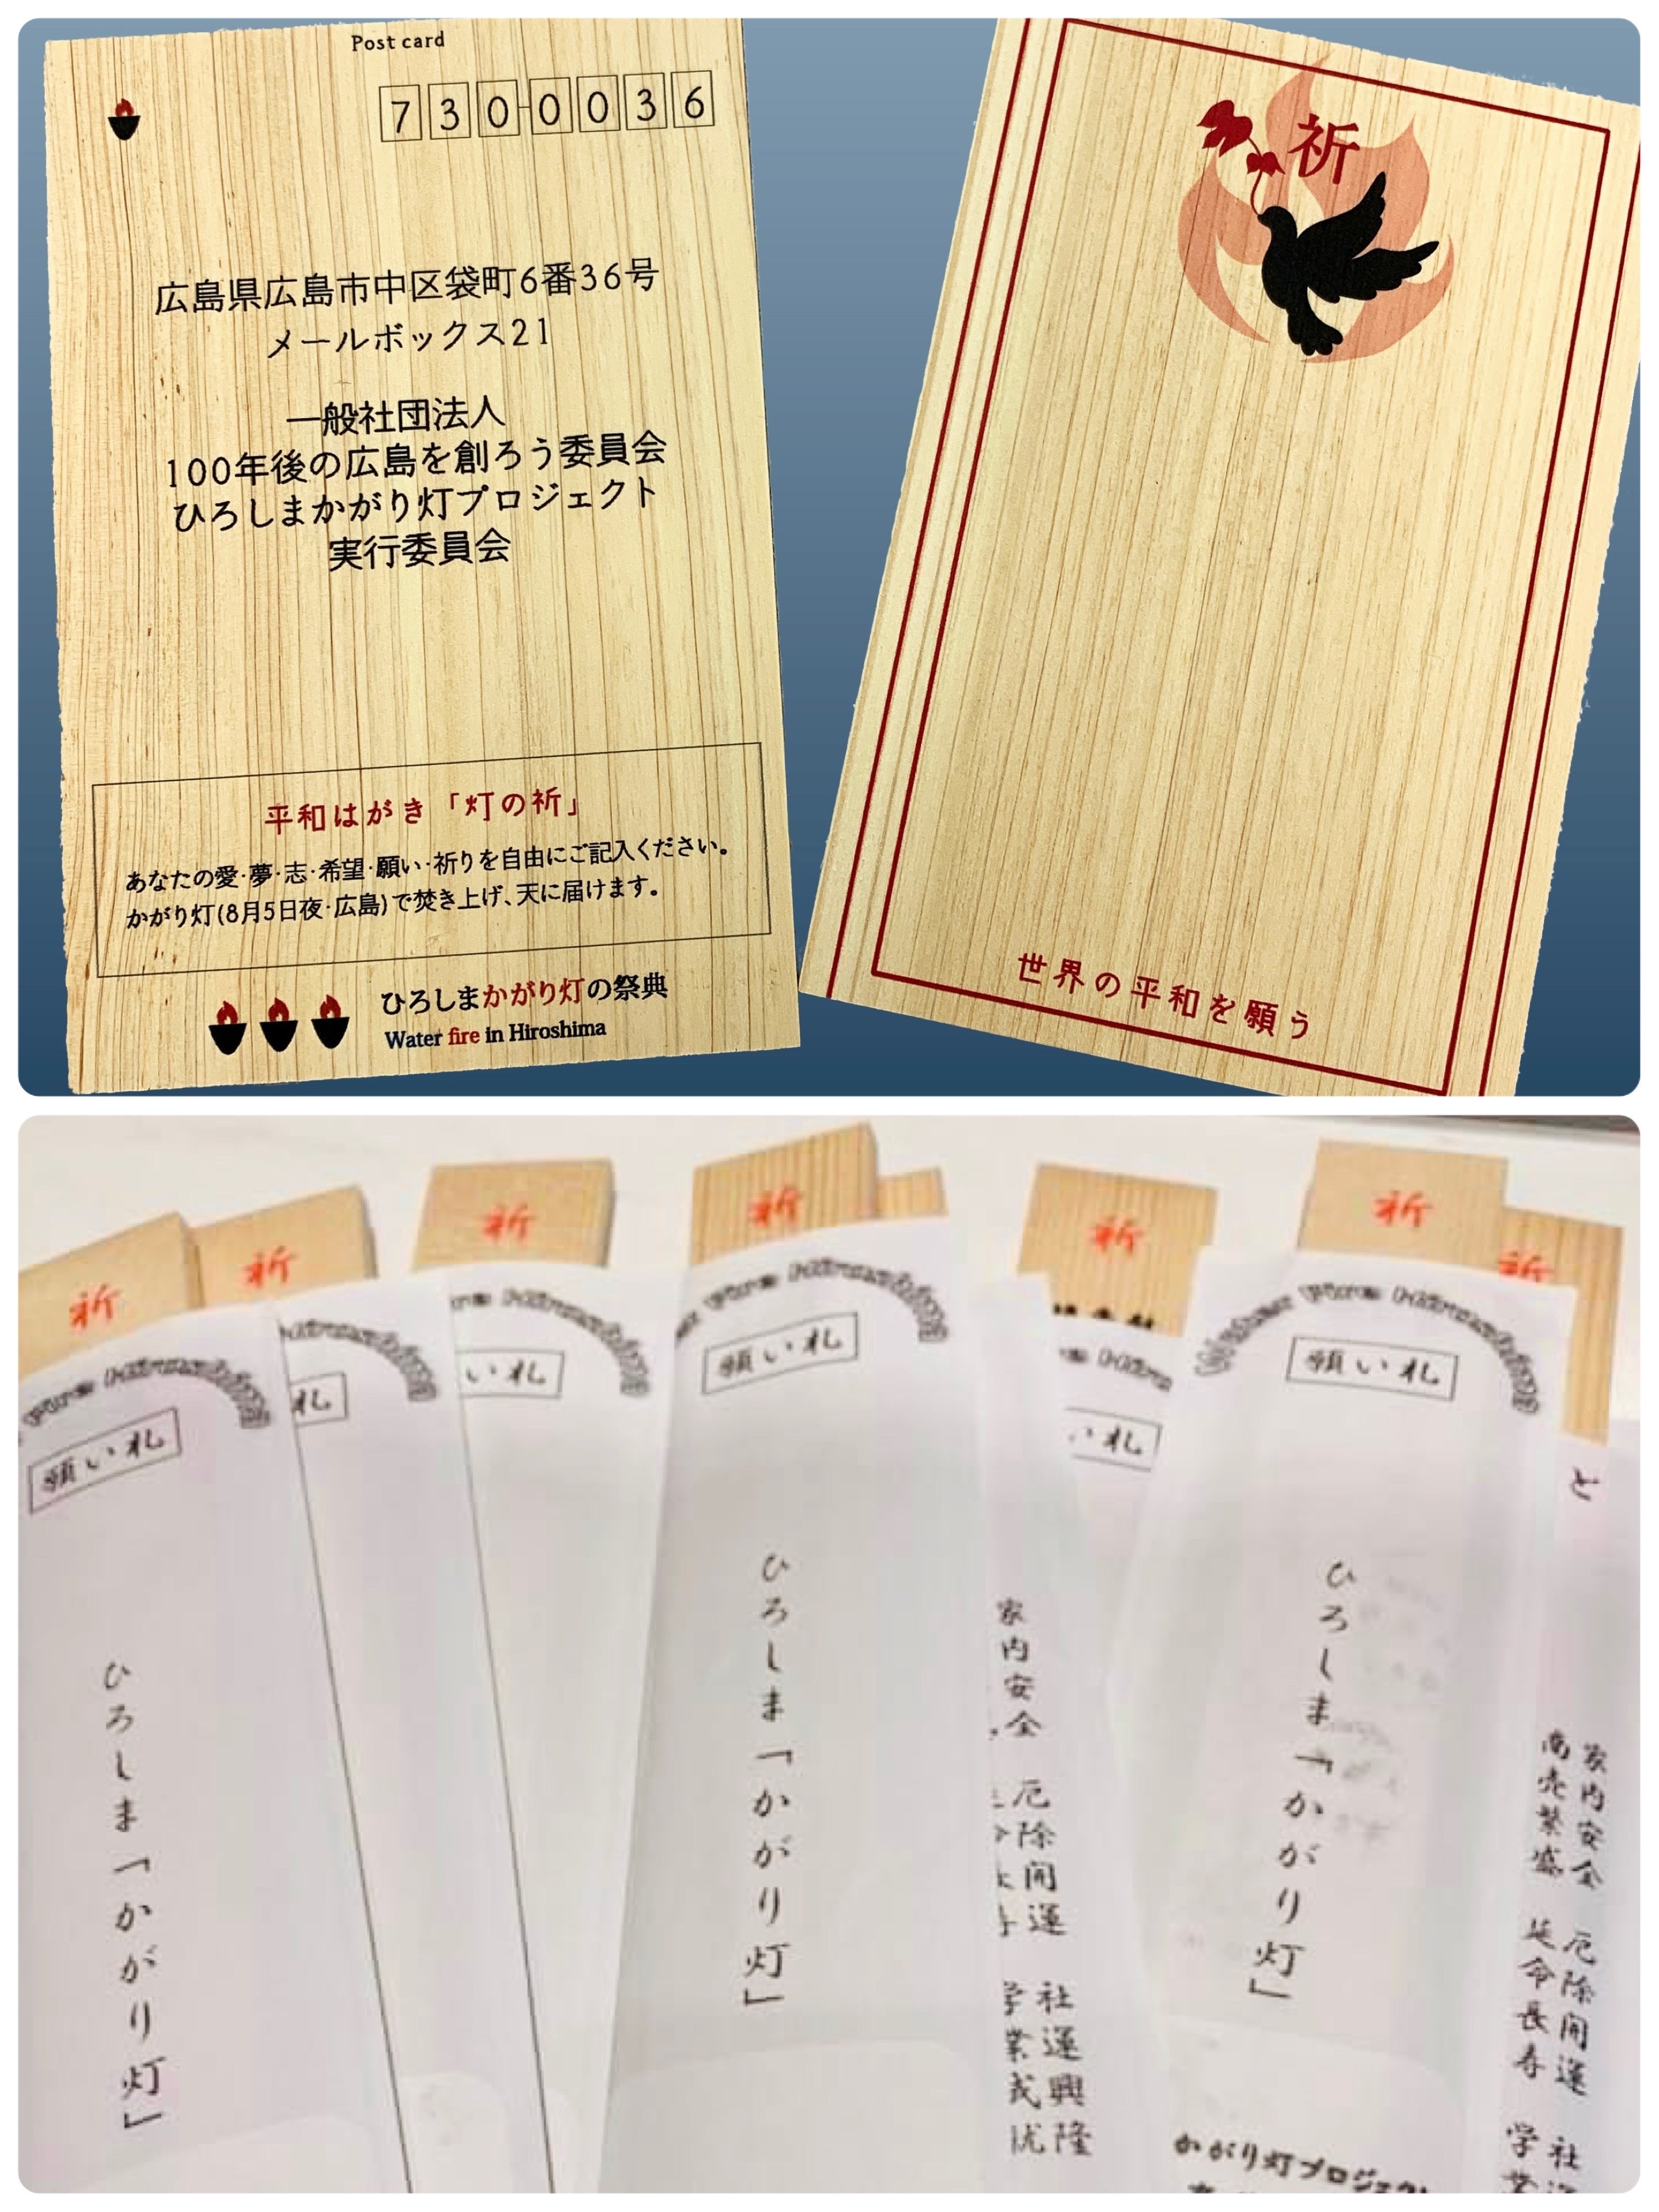 Post card
730-0036
広島県広島市中区袋町6番36号
メールボックス21
一般社団法人
100年後の広島を創ろう委員会
ひろしまかがり灯プロジェクト
実行委員会
平和はがき「灯の祈」
あなたの愛・夢・志・希望・願い・祈りを自由にご記入ください。
かがり灯(8月5日夜・広島)で焚き上げ、天に届けます。
ひろしまかがり灯の祭典
Water fire in Hiroshima
祈
世界の平和を願う
祈
祈
祈
祈
祈
祈
祈
Fire Hiroshima
願い札
ひろしま「かがり灯」
Hiroshima
札
Hiroshima
い札
Fire Hiroshima
願い札
ひろしま「かがり灯」
い札
家内安全
厄除開運
社運興隆
学業成
Water Fire Hiroshima
願い札
ひろしま「かがり灯」
かがり灯プロジェク
と
家内安全
厄除開運
社
商売繁盛
延命長寿
学